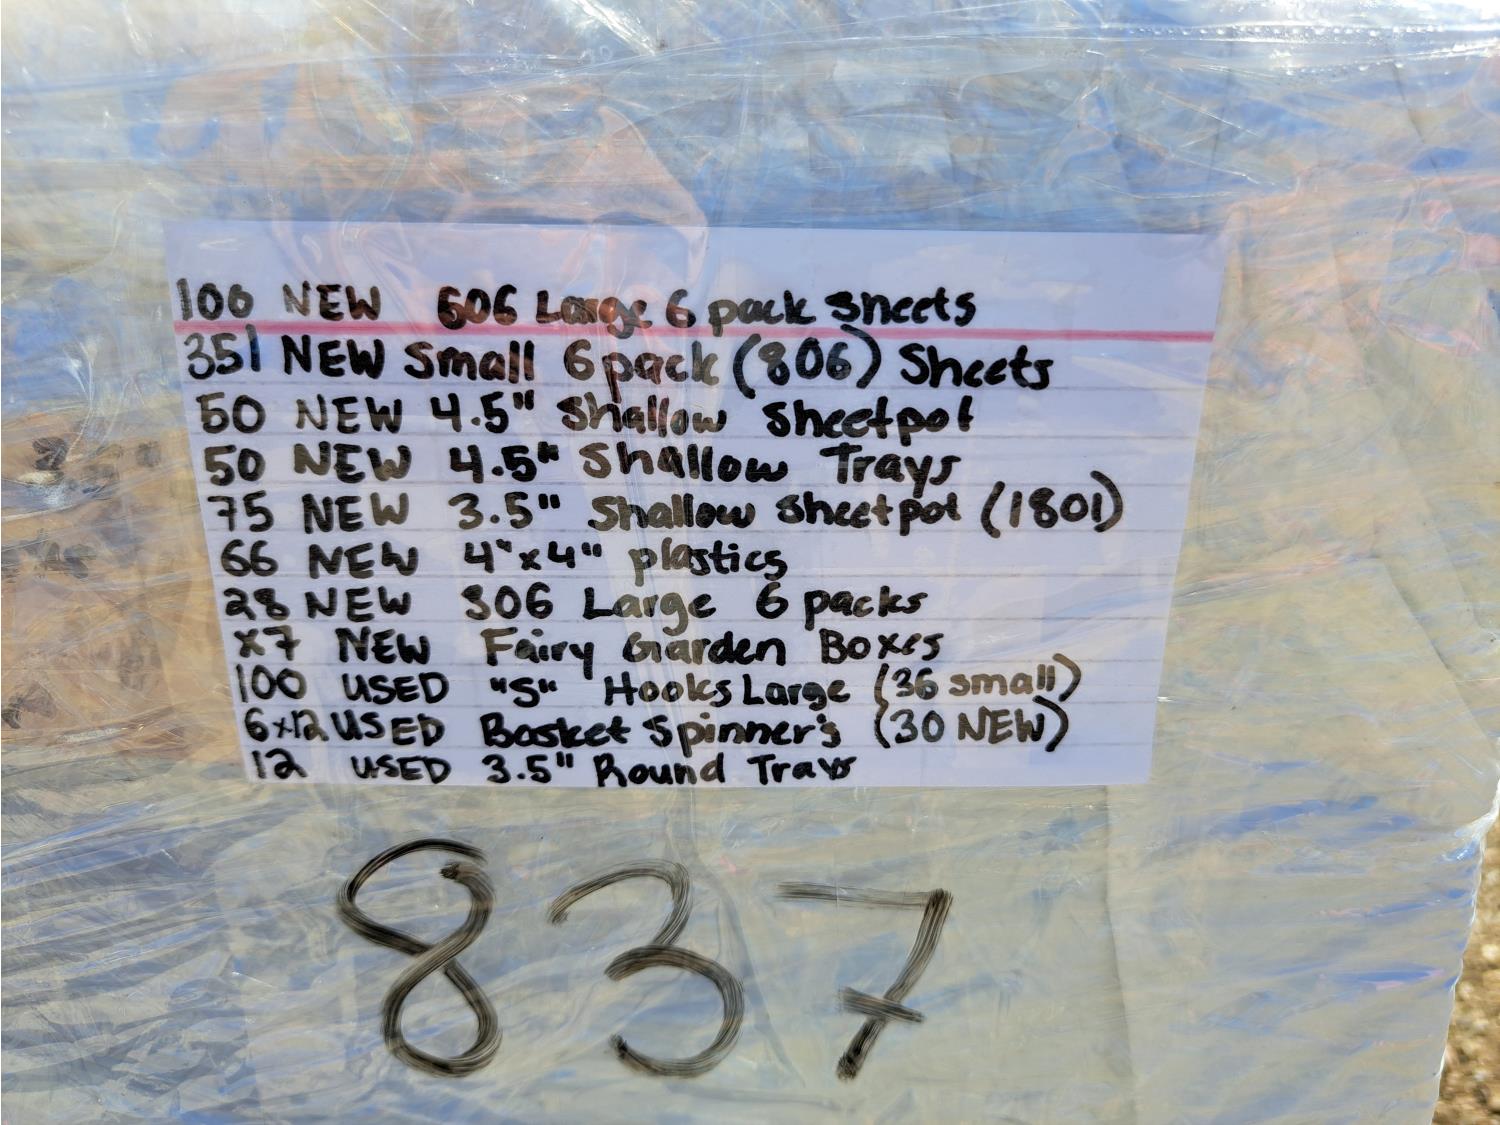 100 NEW 606 Large 6 pack sheets
351 NEW Small 6 pack (806) Sheets
50 NEW 4.5" Shallow Sheetpot
50 NEW 4.5" Shallow Trays
75 NEW 3.5" Shallow Sheetpot (1801)
66 NEW 4"x4" plastics
28 NEW 306 Large 6 packs
x7 NEW Fairy Garden Boxes
100 USED "S" Hooks Large (36 small)
6x12 USED Basket Spinner's (30 NEW)
12 USED 3.5" Round Trays
837